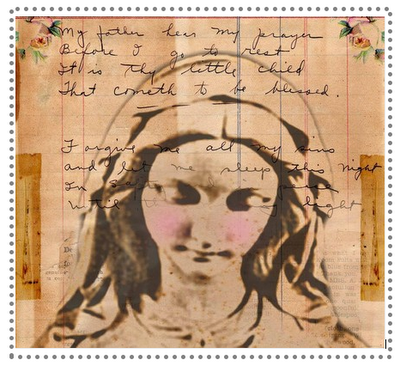 My father hear my prayer
Before I go to rest
It is thy little child
That cometh to be blessed.
Forgive me all my sins
and let me sleep this night
In
Until light